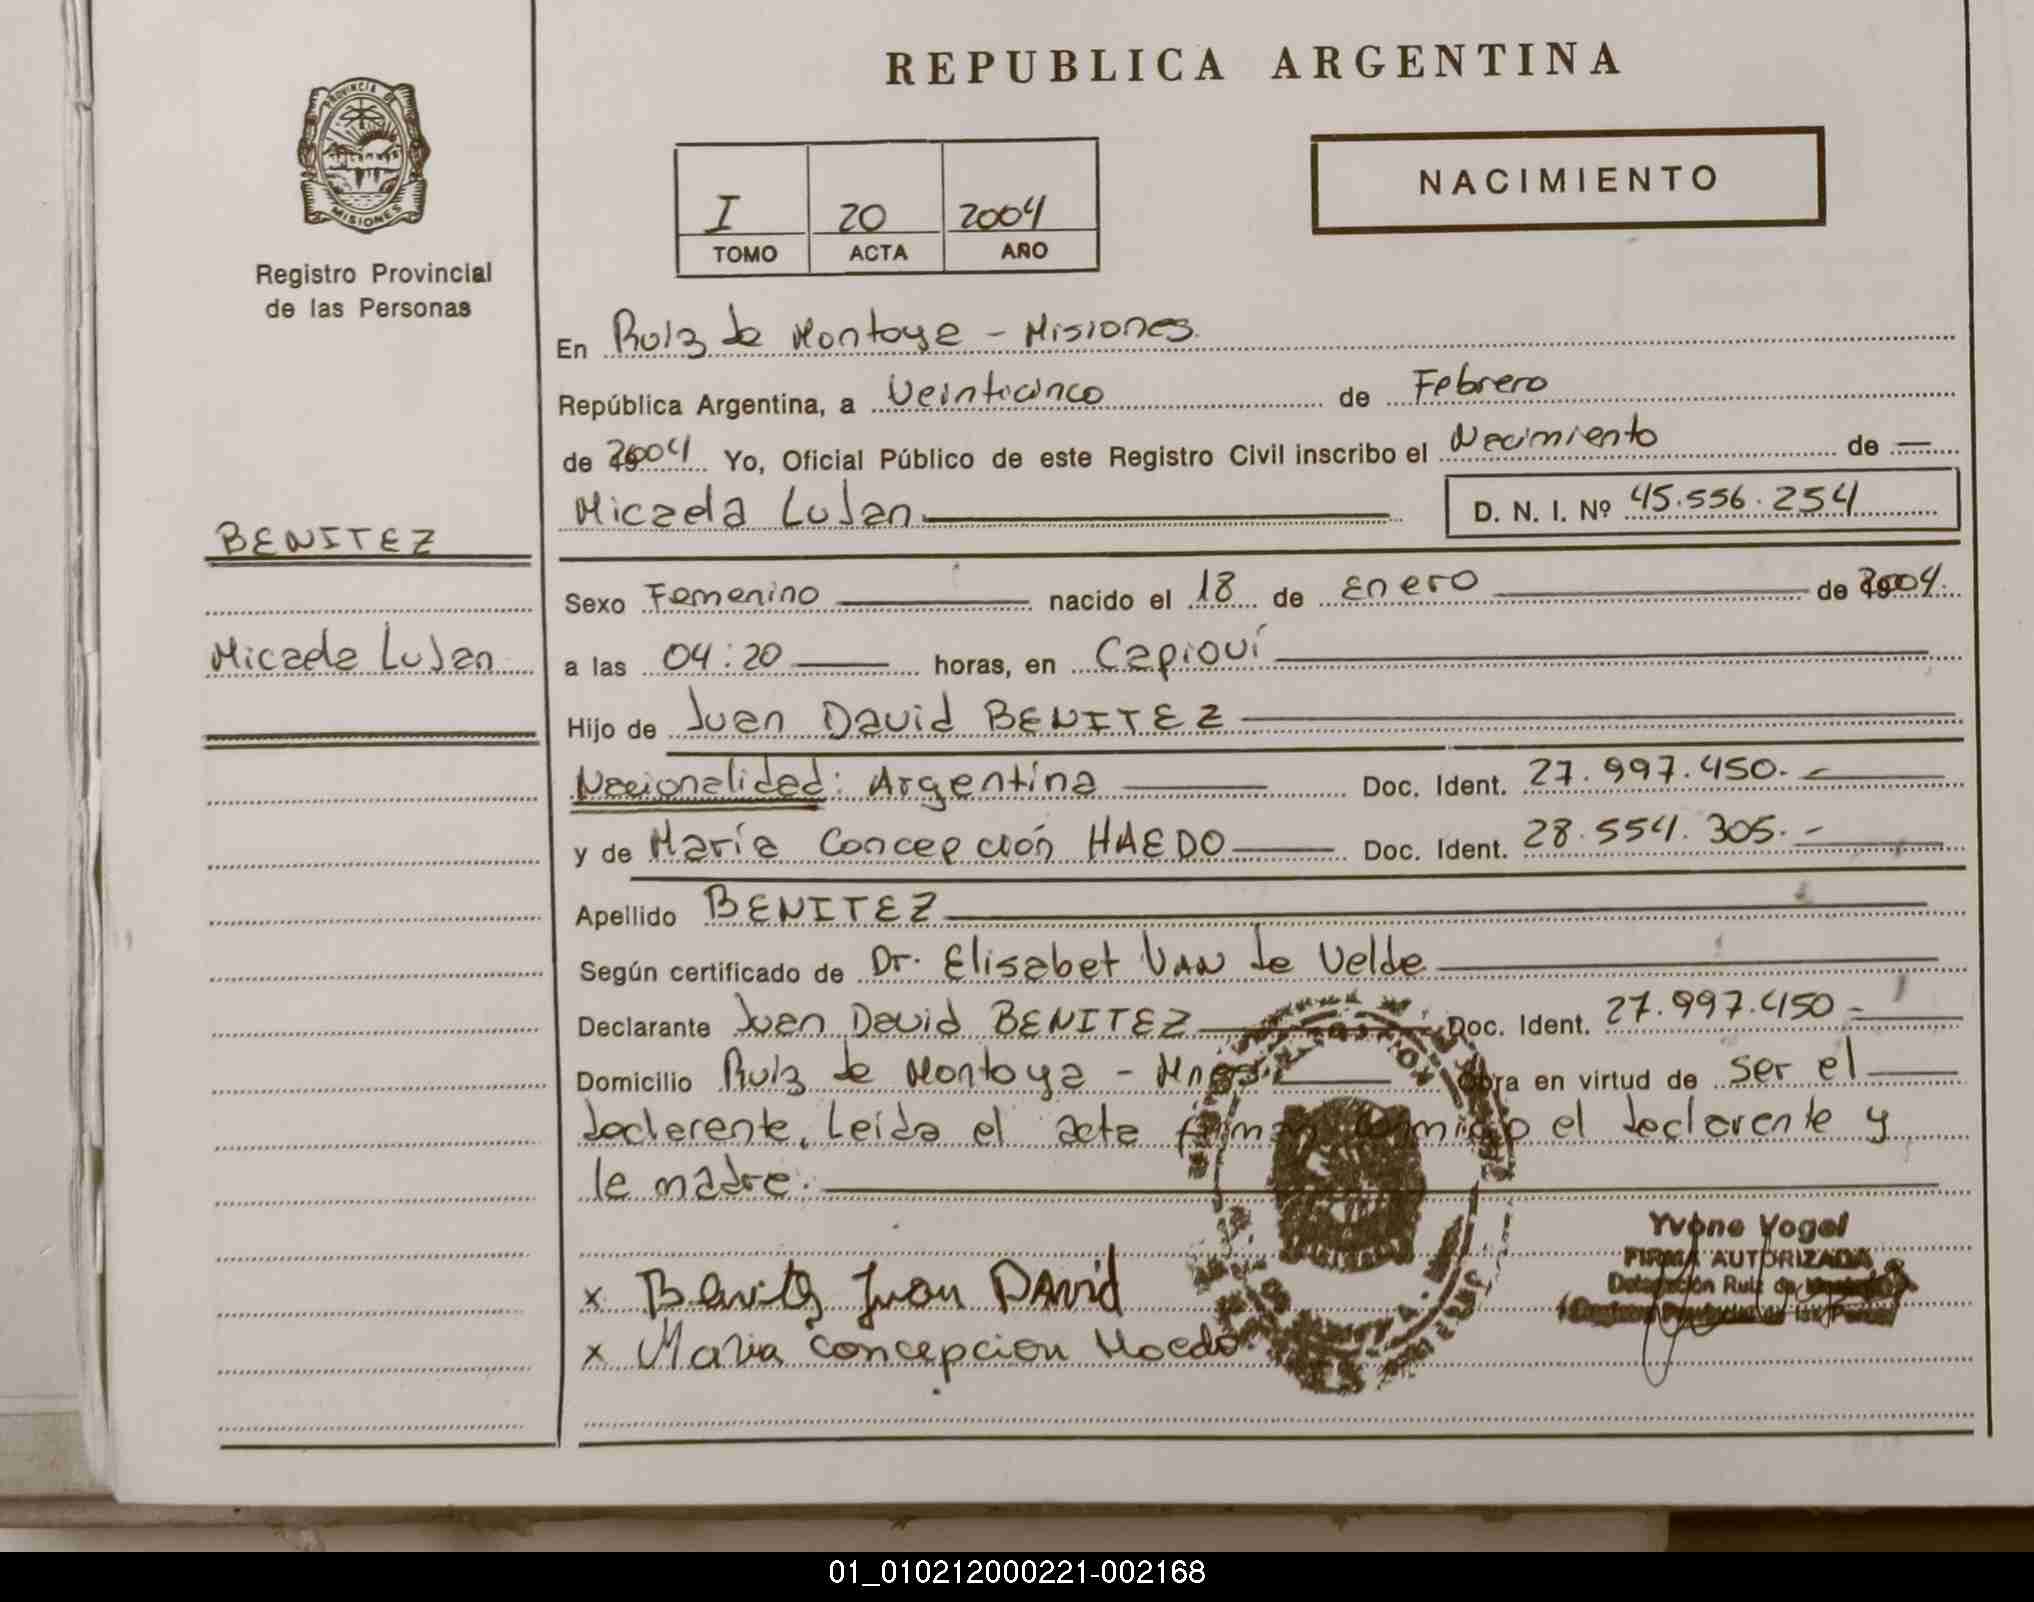 REPUBLICA ARGENTINA
PROVINCIA DE
MISIONES
Registro Provincial
de las Personas
NACIMIENTO
I 20 2004
TOMO ACTA AÑO
En Ruiz de Montoya - Misiones
República Argentina, a Veinticinco de Febrero
de 2004 Yo, Oficial Público de este Registro Civil inscribo el Nacimiento de —
Micaela LuJan D. N. I. Nº 45.556.254
BENITEZ
Micaela LuJan
Sexo Femenino nacido el 18 de Enero de 2004.
a las 04:20 horas, en Capioví
Hijo de Juan David BENITEZ
Nacionalidad: Argentina Doc. Ident. 27.997.450.-
y de María Concepción HAEDO Doc. Ident. 28.554.305.-
Apellido BENITEZ
Según certificado de Dr. Elisabet VAN de Velde
Declarante Juan David BENITEZ Doc. Ident. 27.997.450-
Domicilio Ruiz de Montoya - Mnes. Obra en virtud de ser el
declarente. Leída el acta firman conmigo el declarente y
la madre.
Yvone Vogel
FIRMA AUTORIZADA
Delegación Ruiz de
x Benitez Juan DAvid
x Maria Concepcion Haedo
01_010212000221-002168